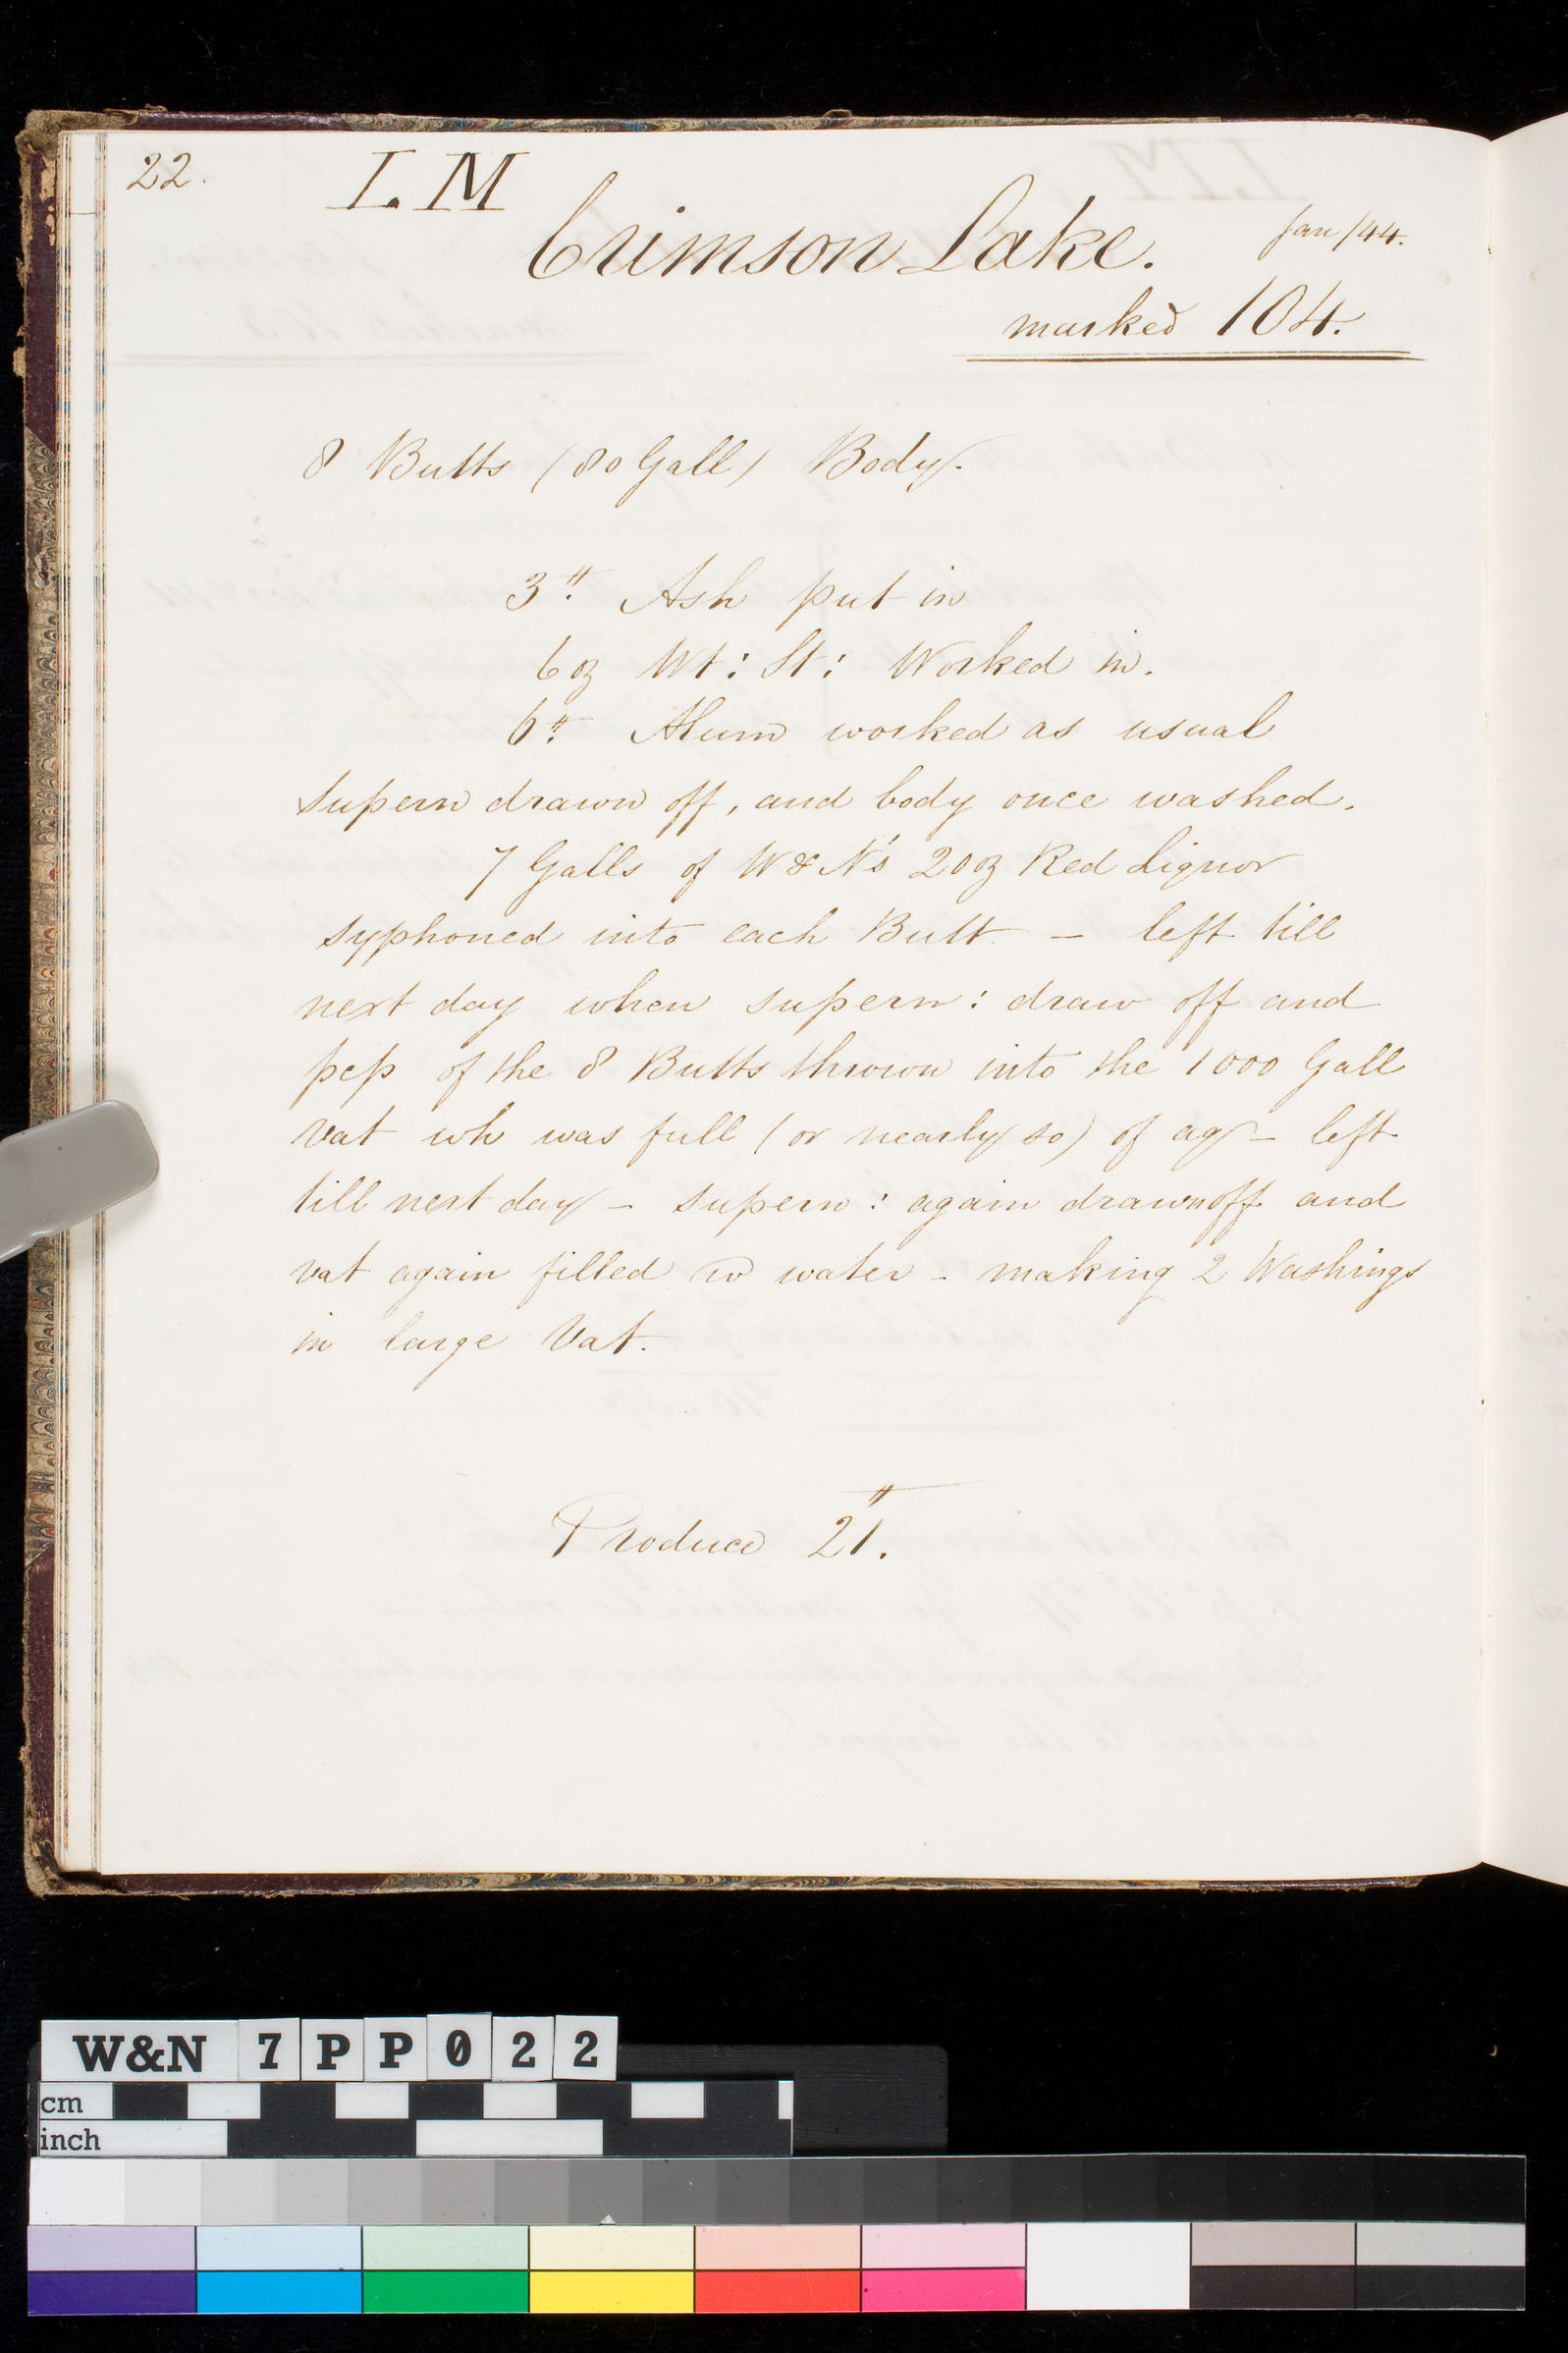 22.
I. M
Crimson Lake.
Jan/44.
marked 104.
8 Butts (80 Gall) Body.
3 ℔. Ash put in
6 oz Wt: St: Worked in.
6 ℔. Alum worked as usual
Supern drawn off, and body once washed.
7 Galls of W & N's 20 oz Red Liquor
syphoned into each Butt – left till
next day when supern: draw off and
pcp of the 8 Butts thrown into the 1000 Gall
Vat wh was full (or nearly so) of aq – left
till next day – supern: again drawn off and
vat again filled w water – making 2 Washings
in large Vat.
Produce 21 ℔.
W&N 7PP022
cm
inch